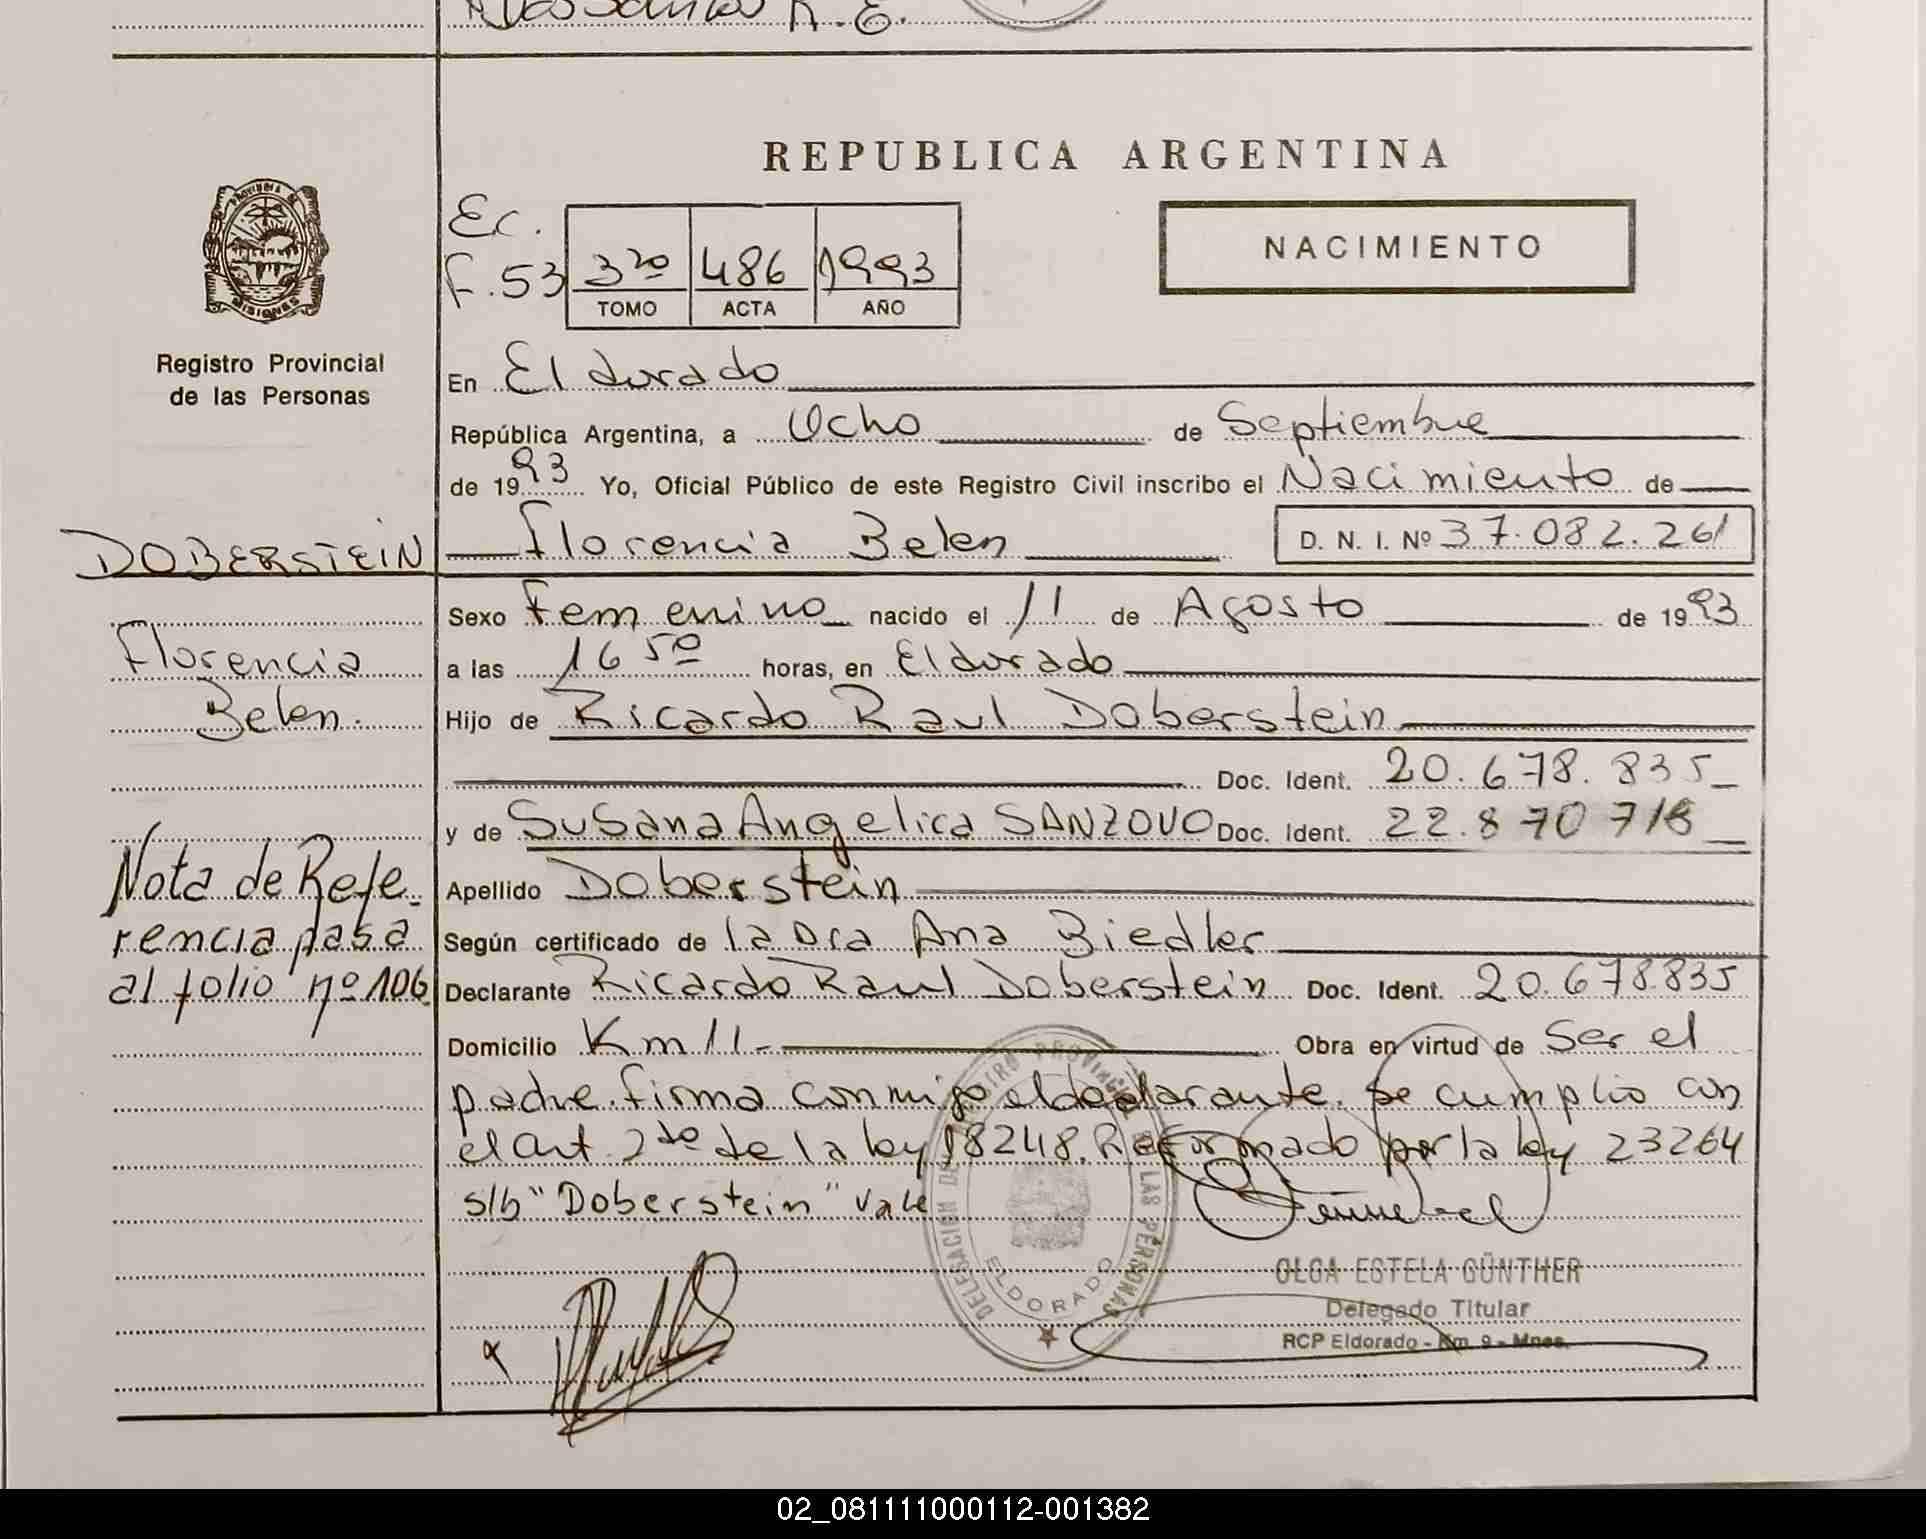 R. E.
REPUBLICA ARGENTINA
PROVINCIA
MISIONES
Registro Provincial
de las Personas
Ec.
F. 53
3ro 486 1993
TOMO ACTA AÑO
NACIMIENTO
En Eldorado
República Argentina, a Ocho de Septiembre
de 1993 Yo, Oficial Público de este Registro Civil inscribo el Nacimiento de
DOBERSTEIN
Florencia Belen D. N. I. Nº 37.082.261
Sexo Femenino nacido el 11 de Agosto de 1993
Florencia
a las 16 50 horas, en Eldorado
Belen.
Hijo de Ricardo Raul Doberstein
Doc. Ident. 20.678.835
y de Susana Angelica SANZOVO Doc. Ident. 22.870 716
Nota de Refe-
Apellido Doberstein
rencia pasa
Según certificado de la Dra Ana Biedler
al folio nº 106
Declarante Ricardo Raul Doberstein Doc. Ident. 20.678.835
Domicilio Km 11- Obra en virtud de Ser el
padre. firma conmigo el declarante. se cumplio con
el art. 2do de la ley 18248. Reformado por la ley 23264
s/b "Doberstein" Vale
DELEGACION DEL REGISTRO PROVINCIAL DE LAS PERSONAS
ELDORADO
OLGA ESTELA GÜNTHER
Delegado Titular
RCP Eldorado - Km. 9 - Mnes.
02_081111000112-001382